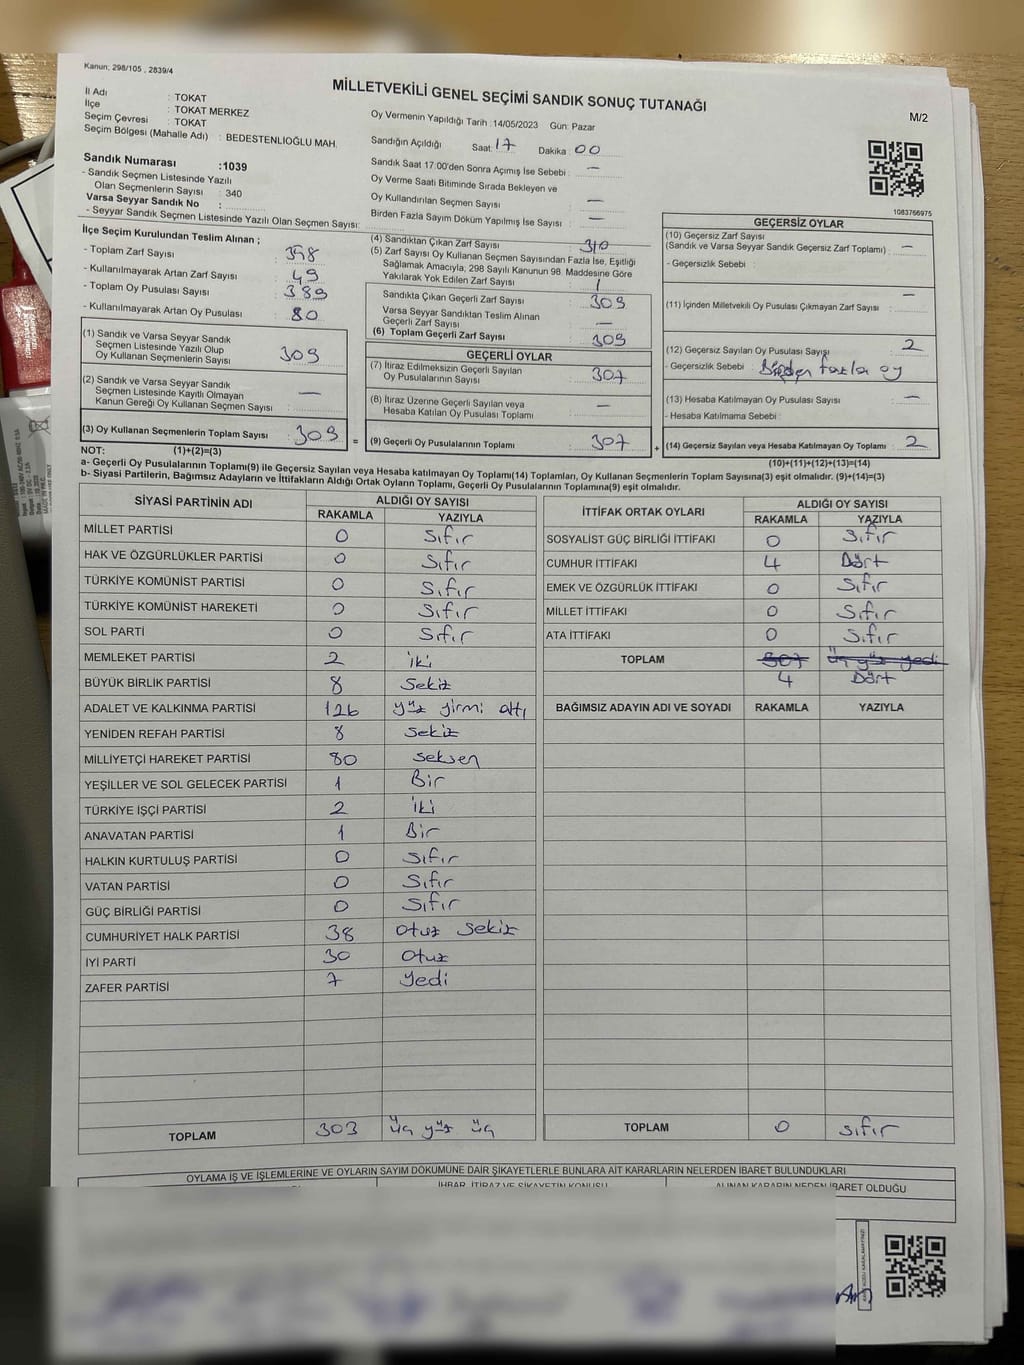 Kanun: 298/105 , 2839/4
MİLLETVEKİLİ GENEL SEÇİMİ SANDIK SONUÇ TUTANAĞI
M/2
İl Adı : TOKAT
İlçe : TOKAT MERKEZ
Seçim Çevresi : TOKAT
Seçim Bölgesi (Mahalle Adı) : BEDESTENLİOĞLU MAH.
Oy Vermenin Yapıldığı Tarih :14/05/2023 Gün: Pazar
Sandığın Açıldığı Saat: 17 Dakika : 00
Sandık Saat 17:00'den Sonra Açımış İse Sebebi : —
Oy Verme Saati Bitiminde Sırada Bekleyen ve
Oy Kullandırılan Seçmen Sayısı : —
Birden Fazla Sayım Döküm Yapılmış İse Sayısı : —
Sandık Numarası :1039
- Sandık Seçmen Listesinde Yazılı
Olan Seçmenlerin Sayısı : 340
Varsa Seyyar Sandık No :
- Seyyar Sandık Seçmen Listesinde Yazılı Olan Seçmen Sayısı:
1083766975
İlçe Seçim Kurulundan Teslim Alınan ;
- Toplam Zarf Sayısı : 358
- Kullanılmayarak Artan Zarf Sayısı : 49
- Toplam Oy Pusulası Sayısı : 389
- Kullanılmayarak Artan Oy Pusulası : 80
(1) Sandık ve Varsa Seyyar Sandık
Seçmen Listesinde Yazılı Olup
Oy Kullanan Seçmenlerin Sayısı : 309
(2) Sandık ve Varsa Seyyar Sandık
Seçmen Listesinde Kayıtlı Olmayan
Kanun Gereği Oy Kullanan Seçmen Sayısı : —
(3) Oy Kullanan Seçmenlerin Toplam Sayısı : 309
(4) Sandıktan Çıkan Zarf Sayısı : 310
(5) Zarf Sayısı Oy Kullanan Seçmen Sayısından Fazla İse, Eşitliği
Sağlamak Amacıyla, 298 Sayılı Kanunun 98. Maddesine Göre
Yakılarak Yok Edilen Zarf Sayısı : 1
Sandıkta Çıkan Geçerli Zarf Sayısı : 309
Varsa Seyyar Sandıktan Teslim Alınan
Geçerli Zarf Sayısı : —
(6) Toplam Geçerli Zarf Sayısı : 309
GEÇERLİ OYLAR
(7) İtiraz Edilmeksizin Geçerli Sayılan
Oy Pusulalarının Sayısı : 307
(8) İtiraz Üzerine Geçerli Sayılan veya
Hesaba Katılan Oy Pusulası Toplamı : —
= (9) Geçerli Oy Pusulalarının Toplamı : 307
GEÇERSİZ OYLAR
(10) Geçersiz Zarf Sayısı
(Sandık ve Varsa Seyyar Sandık Geçersiz Zarf Toplamı) : —
- Geçersizlik Sebebi :
(11) İçinden Milletvekili Oy Pusulası Çıkmayan Zarf Sayısı : —
(12) Geçersiz Sayılan Oy Pusulası Sayısı : 2
- Geçersizlik Sebebi : Birden fazla oy
(13) Hesaba Katılmayan Oy Pusulası Sayısı : —
- Hesaba Katılmama Sebebi :
+ (14) Geçersiz Sayılan veya Hesaba Katılmayan Oy Toplamı : 2
NOT: (1)+(2)=(3)
(10)+(11)+(12)+(13)=(14)
a- Geçerli Oy Pusulalarının Toplamı(9) ile Geçersiz Sayılan veya Hesaba katılmayan Oy Toplamı(14) Toplamları, Oy Kullanan Seçmenlerin Toplam Sayısına(3) eşit olmalıdır. (9)+(14)=(3)
b- Siyasi Partilerin, Bağımsız Adayların ve İttifakların Aldığı Ortak Oyların Toplamı, Geçerli Oy Pusulalarının Toplamına(9) eşit olmalıdır.
SİYASİ PARTİNİN ADI ALDIĞI OY SAYISI
RAKAMLA YAZIYLA
MİLLET PARTİSİ 0 Sıfır
HAK VE ÖZGÜRLÜKLER PARTİSİ 0 Sıfır
TÜRKİYE KOMÜNİST PARTİSİ 0 Sıfır
TÜRKİYE KOMÜNİST HAREKETİ 0 Sıfır
SOL PARTİ 0 Sıfır
MEMLEKET PARTİSİ 2 iki
BÜYÜK BİRLİK PARTİSİ 8 Sekiz
ADALET VE KALKINMA PARTİSİ 126 yüz yirmi altı
YENİDEN REFAH PARTİSİ 8 Sekiz
MİLLİYETÇİ HAREKET PARTİSİ 80 seksen
YEŞİLLER VE SOL GELECEK PARTİSİ 1 Bir
TÜRKİYE İŞÇİ PARTİSİ 2 iki
ANAVATAN PARTİSİ 1 Bir
HALKIN KURTULUŞ PARTİSİ 0 Sıfır
VATAN PARTİSİ 0 Sıfır
GÜÇ BİRLİĞİ PARTİSİ 0 Sıfır
CUMHURİYET HALK PARTİSİ 38 otuz sekiz
İYİ PARTİ 30 otuz
ZAFER PARTİSİ 7 Yedi
TOPLAM 303 üç yüz üç
İTTİFAK ORTAK OYLARI ALDIĞI OY SAYISI
RAKAMLA YAZIYLA
SOSYALİST GÜÇ BİRLİĞİ İTTİFAKI 0 Sıfır
CUMHUR İTTİFAKI 4 Dört
EMEK VE ÖZGÜRLÜK İTTİFAKI 0 Sıfır
MİLLET İTTİFAKI 0 Sıfır
ATA İTTİFAKI 0 Sıfır
TOPLAM 307 üç yüz yedi
4 Dört
BAĞIMSIZ ADAYIN ADI VE SOYADI RAKAMLA YAZIYLA
TOPLAM 0 sıfır
OYLAMA İŞ VE İŞLEMLERİNE VE OYLARIN SAYIM DÖKÜMÜNE DAİR ŞİKAYETLERLE BUNLARA AİT KARARLARIN NELERDEN İBARET BULUNDUKLARI
İHBAR, İTİRAZ VE ŞİKAYETİN KONUSU ALINAN KARARIN NEDEN İBARET OLDUĞU